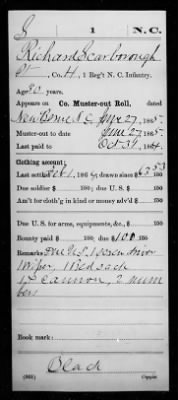 S 1 N.C.
Richard Scarborough
Pt, Co. H, 1 Reg't N. C. Infantry.
Age 20 years.
Appears on Co. Muster-out Roll, dated
New Berne N.C. June 27, 1865.
Muster-out to date June 27, 1865.
Last paid to Oct 31, 1864.
Clothing account:
Last settled 186 ; drawn since $ 63 53
Due soldier $ 100; due U. S. $ 100
Am't for cloth'g in kind or money adv'd $ 100
Due U. S. for arms, equipments, &c., $ 100
Bounty paid $ 100; due $ 100 100
Remarks: Due U.S. 1 screw driver
wiper,
cannon, 2 num
bers
Book mark:
Black
Copyist.